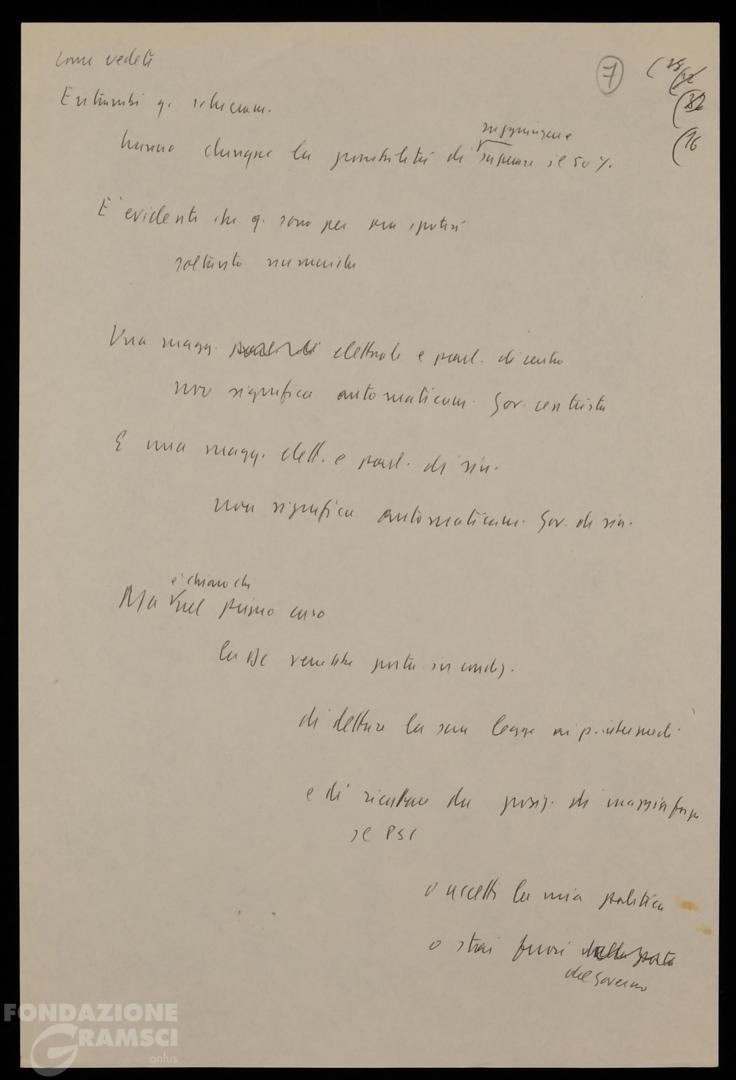 come vedete
7
Entrambi q. schieram.
raggiungere
hanno dunque la possibilità di superare il 50%.
E' evidente che q. sono per ora ipotesi
soltanto numeriche
Una magg. elettorale e parl. di centro
non significa automaticam. Gov. centrista
E una magg. elett. e parl. di sin.
non significa automaticam. Gov. di sin.
è chiaro che
Ma nel primo caso
la DC verrebbe posta in condiz.
di dettare la sua legge ai p. intermedi
e di ricattare da posiz. di maggior forza
il PSI
o accetti la mia politica
o stai fuori
del Governo
FONDAZIONE
GRAMSCI
onlus